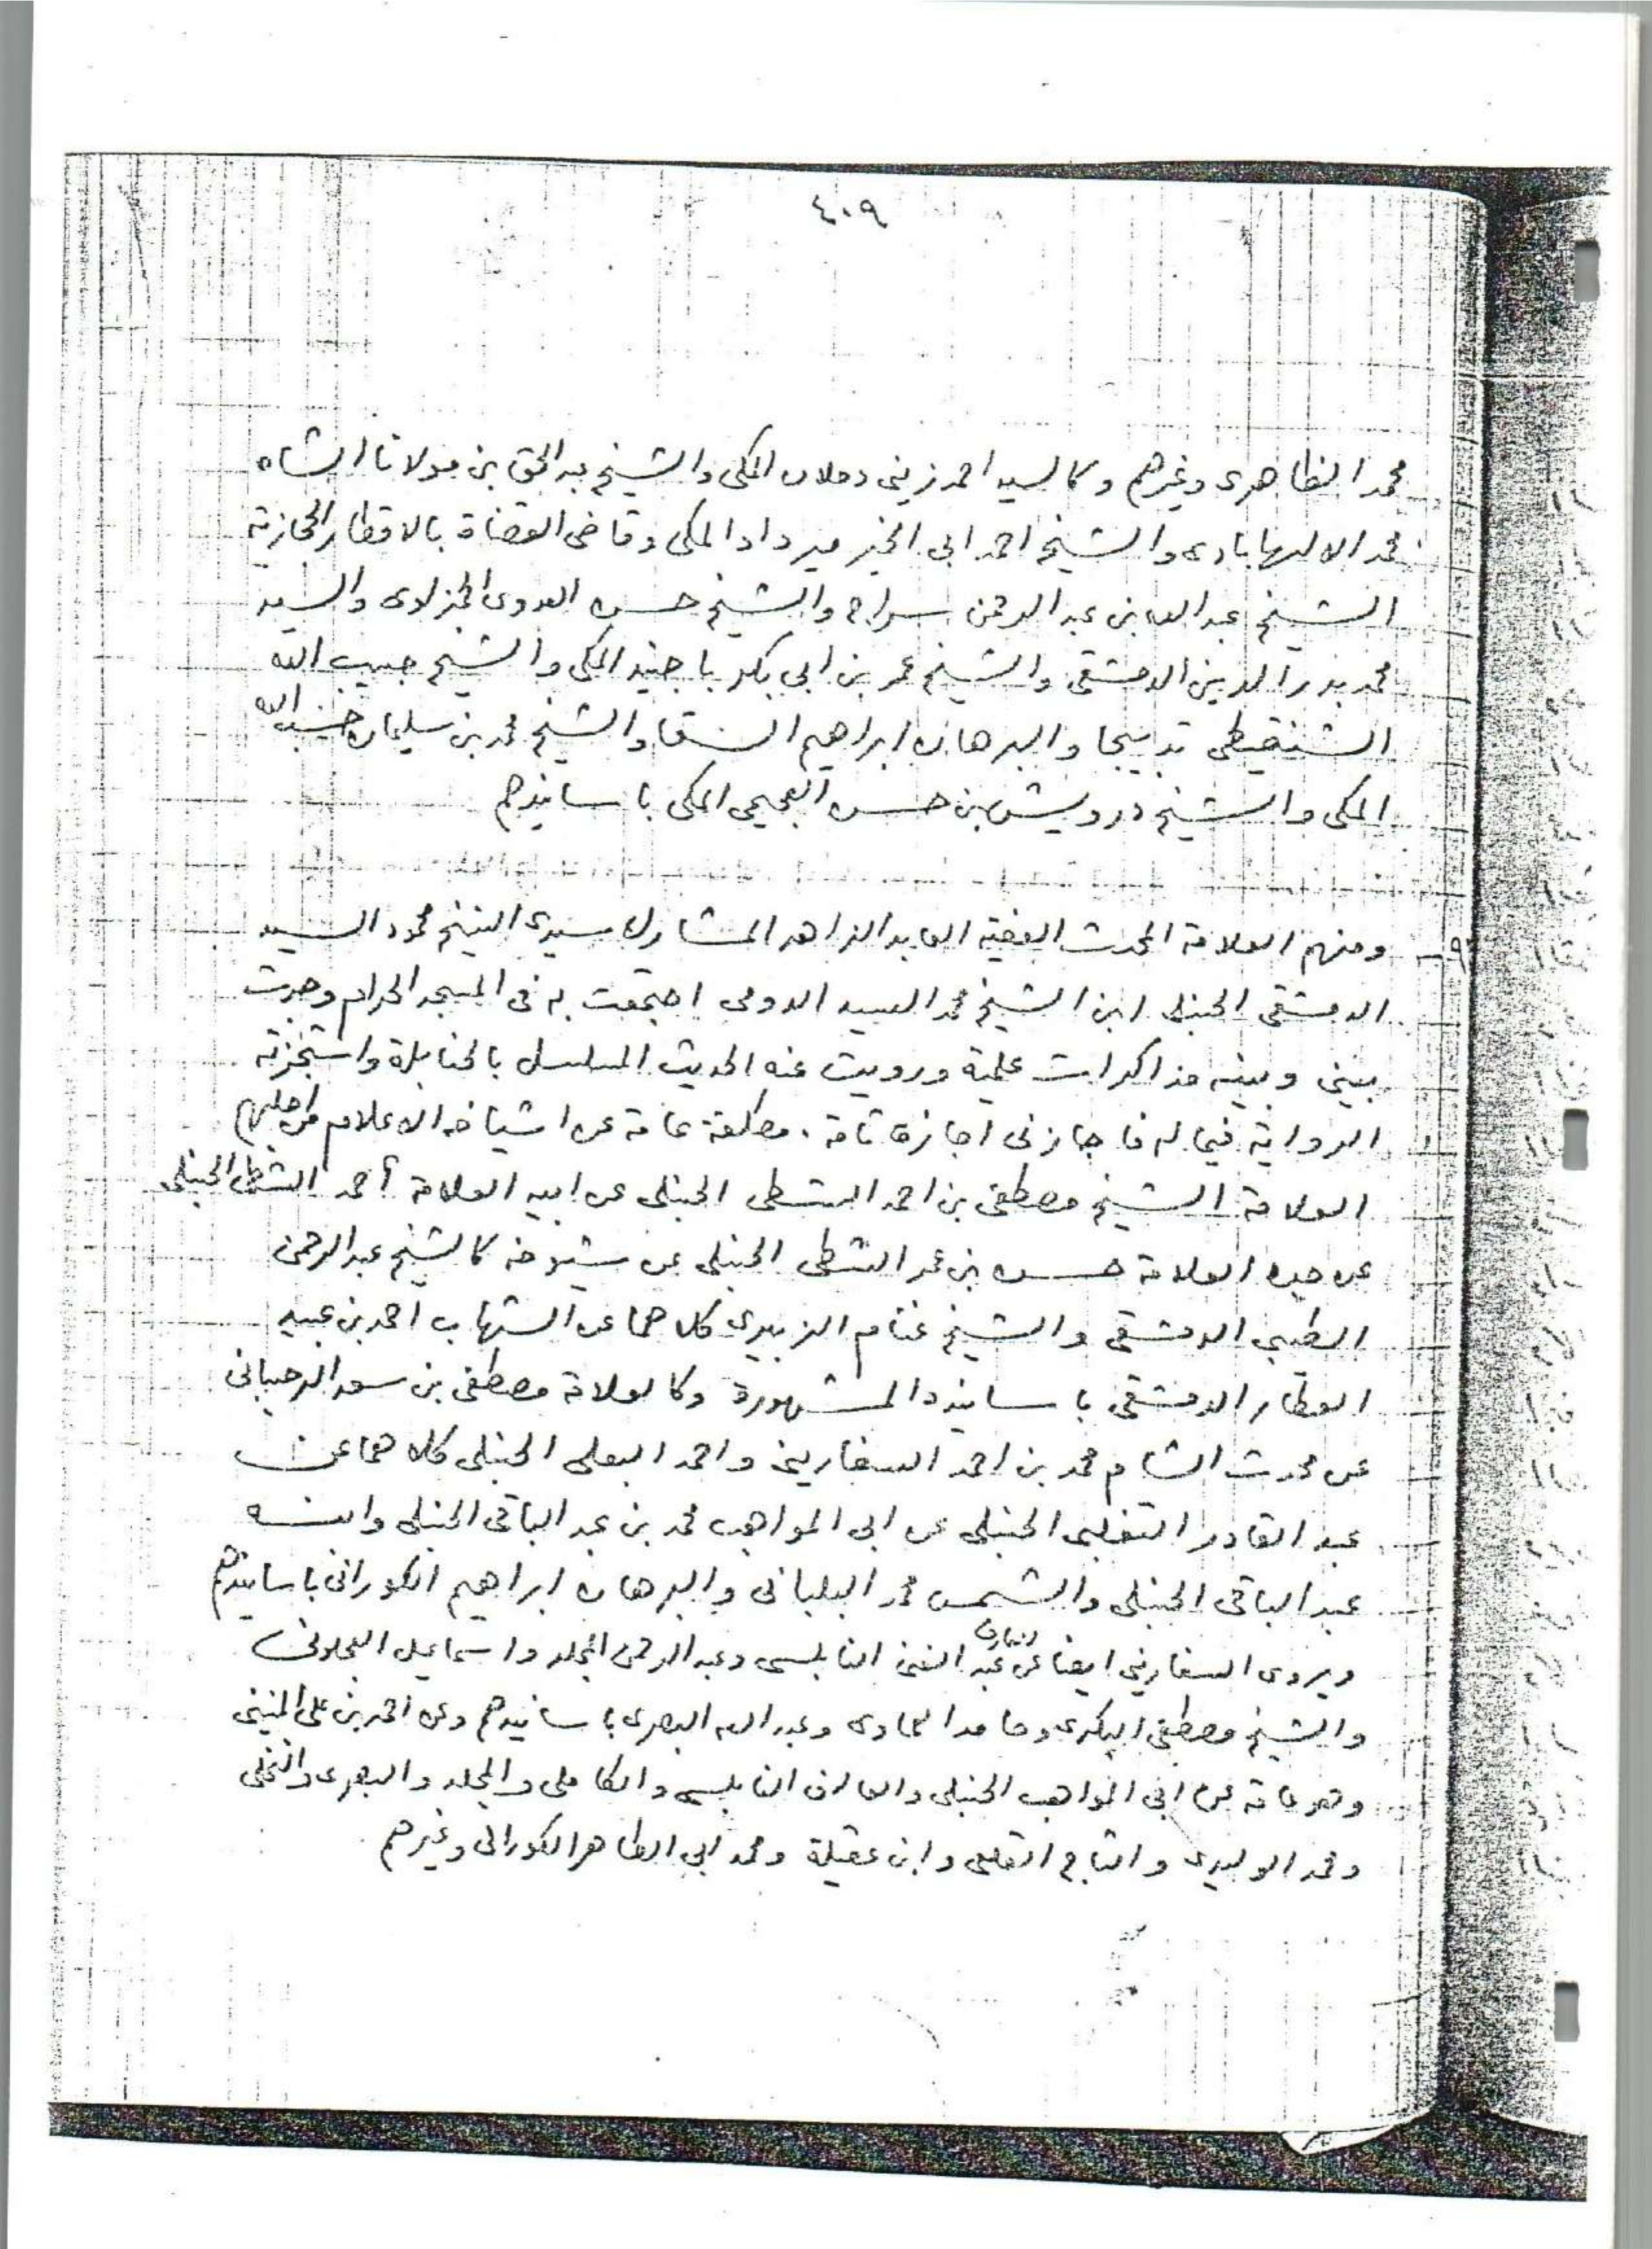 ٤٠٩
محمد الظاهرى وغيرهم وكالسيد احمد زينى دحلان المكى والشيخ عبد الحق بن مولانا الشاه
محمد الالهابادى والشيخ احمد ابى الخير ميرداد المكى وقاضى القضاة بالاقطار الحجازية
الشيخ عبد الله بن عبد الرحمن سراج والشيخ حسن العدوى الحمزاوى والسيد
محمد بدر الدين الدمشقى والشيخ عمر بن ابى بكر باجنيد المكى والشيخ حبيب الله
الشنقيطى تدبيجا والبرهان ابراهيم السقا والشيخ محمد بن سليمان حسب الله
المكى والشيخ درويش بن حسن العجيمى المكى باسانيدهم
٩ - ومنهم العلامة المحدث الفقيه العابد الزاهد المشارك سيدى الشيخ محمود السيد
الدمشقى الحنبلى ابن الشيخ محمد السيد الدومى اجتمعت به فى المسجد الحرام وجرت
بينى وبينه مذاكرات علمية ورويت عنه الحديث المسلسل بالحنابلة واستجزته
الرواية فيما له فاجازنى اجازة تامة مطلقة عامة عن اشياخه الاعلام من اجلهم
العلامة الشيخ مصطفى بن احمد الشطى الحنبلى عن ابيه العلامة أحمد الشطى الحنبلى
عن جده العلامة حسن بن عمر الشطى الحنبلى عن شيوخه كالشيخ عبد الرحمن
الطيبى الدمشقى والشيخ غنام الزبيرى كلاهما عن الشهاب احمد بن عبيد
العطار الدمشقى باسانيده المشهورة وكالعلامة مصطفى بن سعد الرحيبانى
عن محدث الشام محمد بن احمد السفارينى واحمد البعلى الحنبلى كلاهما عن
عبد القادر التغلبى الحنبلى عن ابى المواهب محمد بن عبد الباقى الحنبلى وابنه
عبد الباقى الحنبلى والشمس محمد البلبانى والبرهان ابراهيم الكورانى باسانيدهم
ويروى السفارينى ايضا عن العارف عبد الغنى النابلسى وعبد الرحمن المجلد واسماعيل العجلونى
والشيخ مصطفى البكرى وحامد العمادى وعبد الله البصرى باسانيدهم وعن احمد بن على المنينى
وهو عامة عن ابى المواهب الحنبلى والعارف النابلسى والكاملى والمجلد والبصرى والنخلى
ومحمد الوليدى والتاج القلعى وابن عقيلة ومحمد ابى الطاهر الكورانى وغيرهم